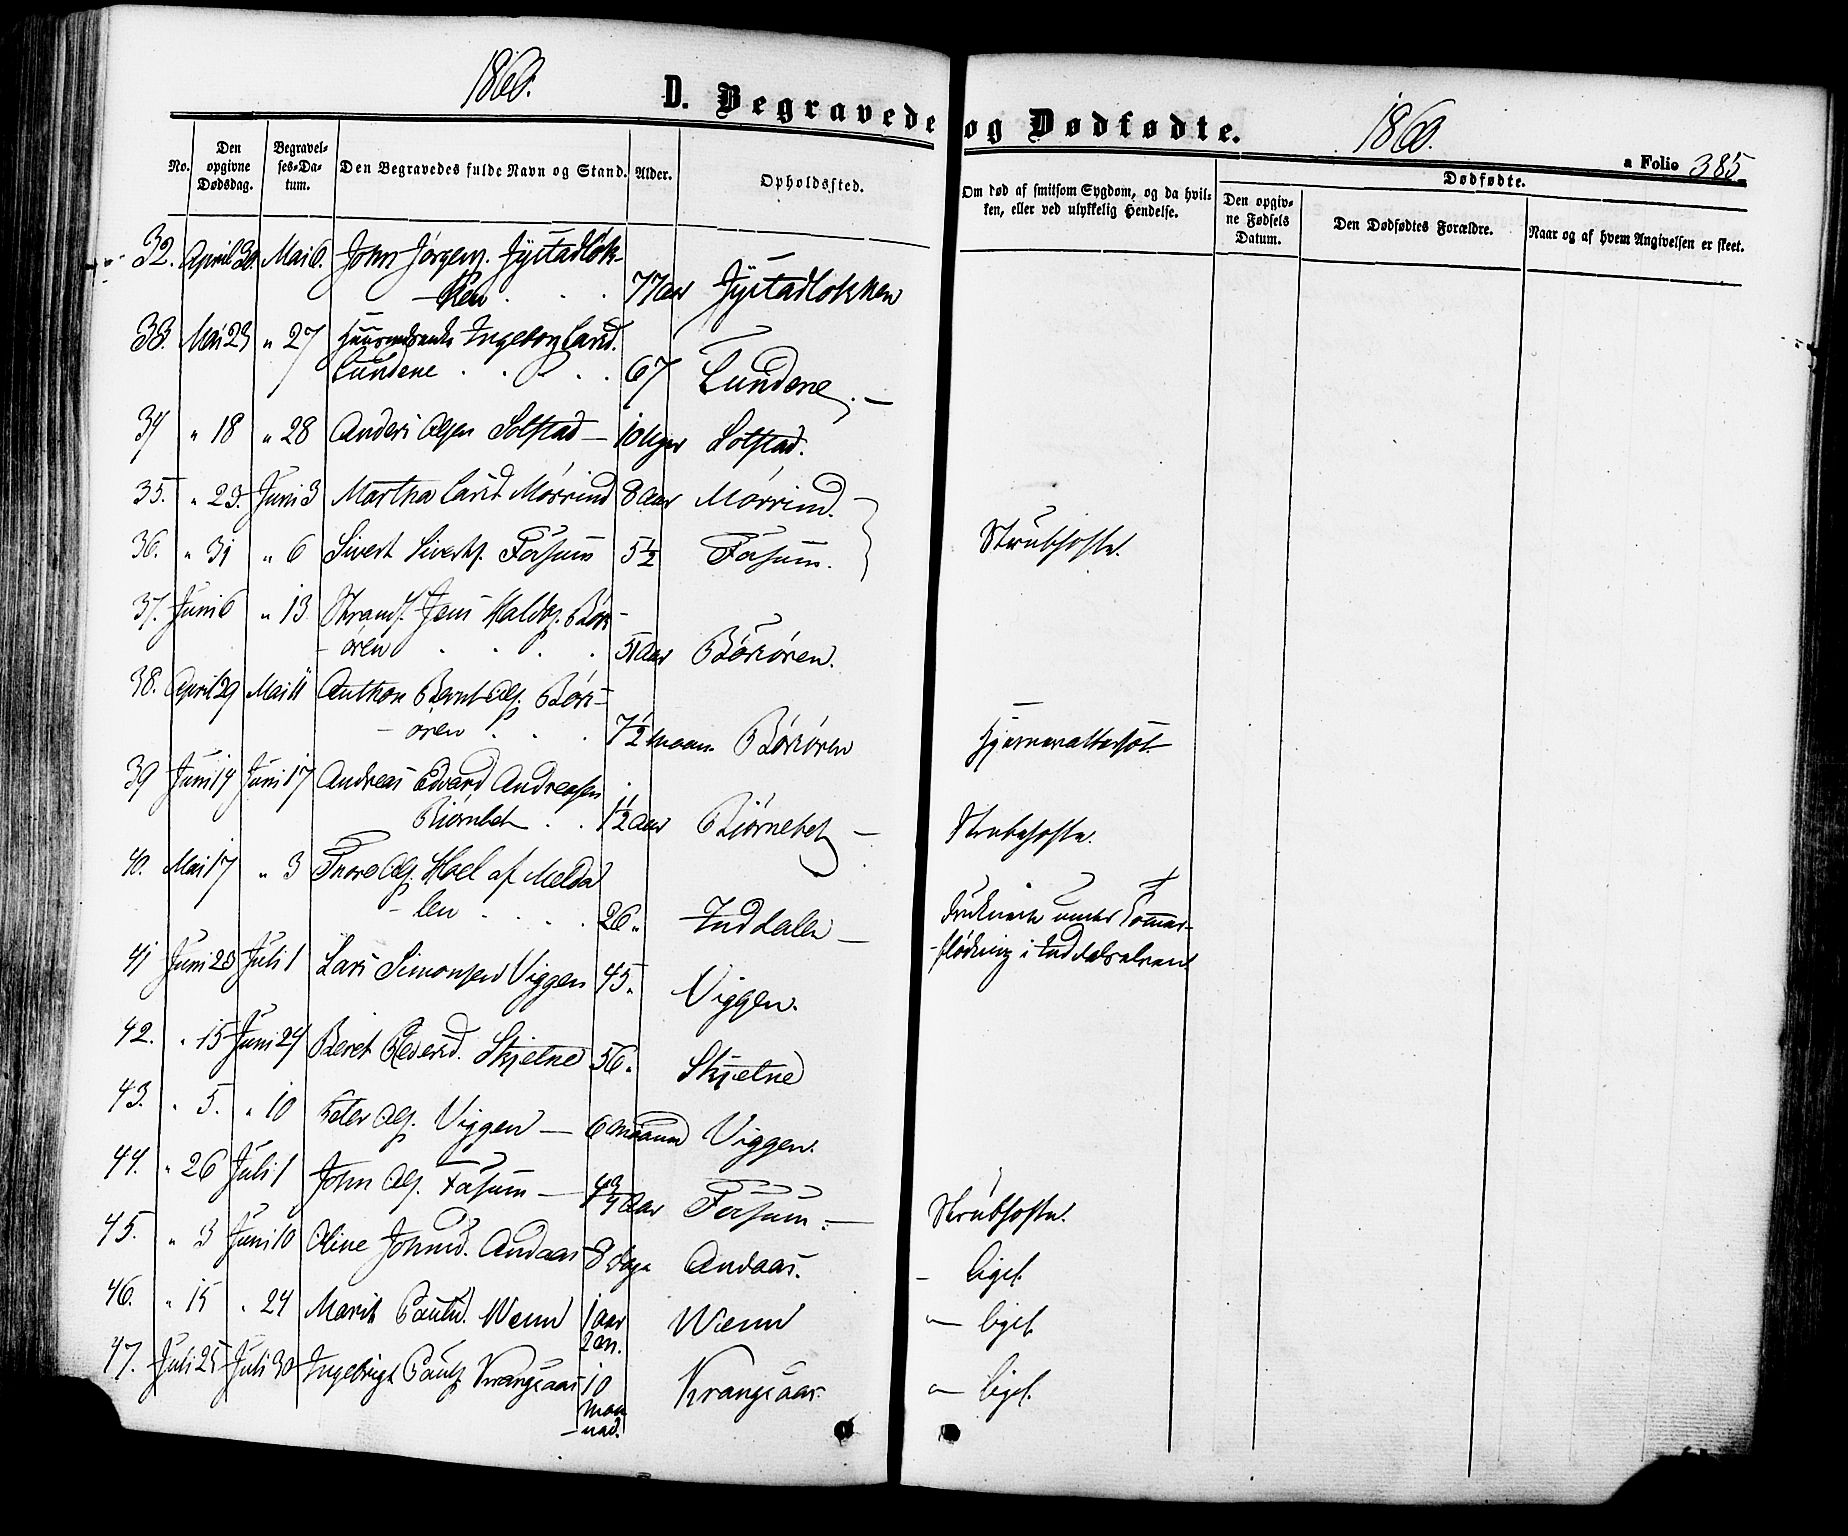 1860.
D. Begravede og Dødfødte.
1860.
a Folio 385
No.
Den opgivne Dødsdag.
Begravelses-Datum.
Den Begravedes fulde Navn og Stand.
Alder.
Opholdssted.
Om død af smitsom Sygdom, og da hvilken, eller ved ulykkelig Hendelse.
Dødfødte.
Den opgivne Fødsels Datum.
Den Dødfødtes Forældre.
Naar og af hvem Angivelsen er skeet.
32. April 30. Mai 6. John Jørgens. Jystadløk-
-ken . . . 77 Aar Jystadløkken
33. Mai 23 " 27 Ingeborg Larsd.
Lundene . . . . 67 Lundene. —
34 " 18 " 28 Anders Olsen Solstad — 10 Uger Solstad.
35. " 23. Juni 3 Martha Larsd. Mörrind 8 Aar Mörrind.
36. " 31 " 6 Sivert Siverts. Fosum 5½ Fosum. Strubehoste.
37. Juni 6 " 13 Jens Haldos. Börs-
-ören . . . . 51 Aar Börsören.
38. April 29 Mai 11 Anthon Bernt Ols. Börs-
-ören . . . 7½ Maan. Börsören
39 Juni 14 Juni 17 Andreas Edvard Andreasen
Biörnbet . . 1½ Aar Biörnebet — Strubehoste.
40. Mai 17 " 3 Thore Ols. Hoel af Melda-
-len . . . . 26 " Inddalen — druknede under Tömmer-
-flödning i Inddalselven
41 Juni 23 Juli 1 Lars Simonsen Viggen 45. " Viggen.
42. " 15 Juni 24 Beret Pedersd. Skjetne 56. " Skjetne
43. " 5. " 10 Peter Ols. Viggen — 6 Maaned Viggen.
44. " 26 Juli 1 John Ols. Fosum — 4¾ Aar Fosum. — Strubehoste.
45. " 3 Juni 10 Oline Johnsd. Andaas 8 Dage Andaas. — liget
46. " 15 " 24 Marit Paulsd. Wenn 1 Aar
2 M. Wenn " — liget
47. Juli 25 Juli 30 Ingebrigt Pauls. Krangsaas 10
Maa-
-ned. Krangsaas. " — liget.